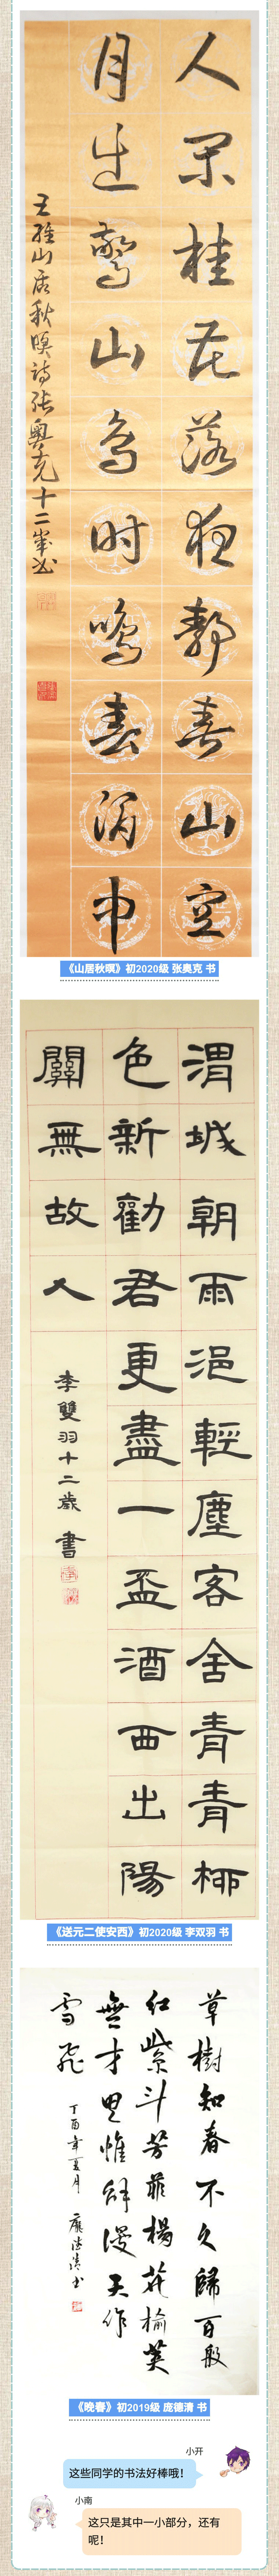 人闲桂花落夜静春山空
月出惊山鸟时鸣春涧中
王维山居秋暝诗张奥克十二岁书
《山居秋暝》初2020级 张奥克 书
渭城朝雨浥輕塵客舍青青柳
色新勸君更盡一盃酒西出陽
關無故人
李雙羽十二歲 書
《送元二使安西》初2020级 李双羽 书
草樹知春不久歸百般
紅紫斗芳菲楊花榆莢
無才思惟解漫天作
雪飛
丁酉年夏月 龐德清书
《晚春》初2019级 庞德清 书
小开
这些同学的书法好棒哦！
小南
这只是其中一小部分，还有
呢！